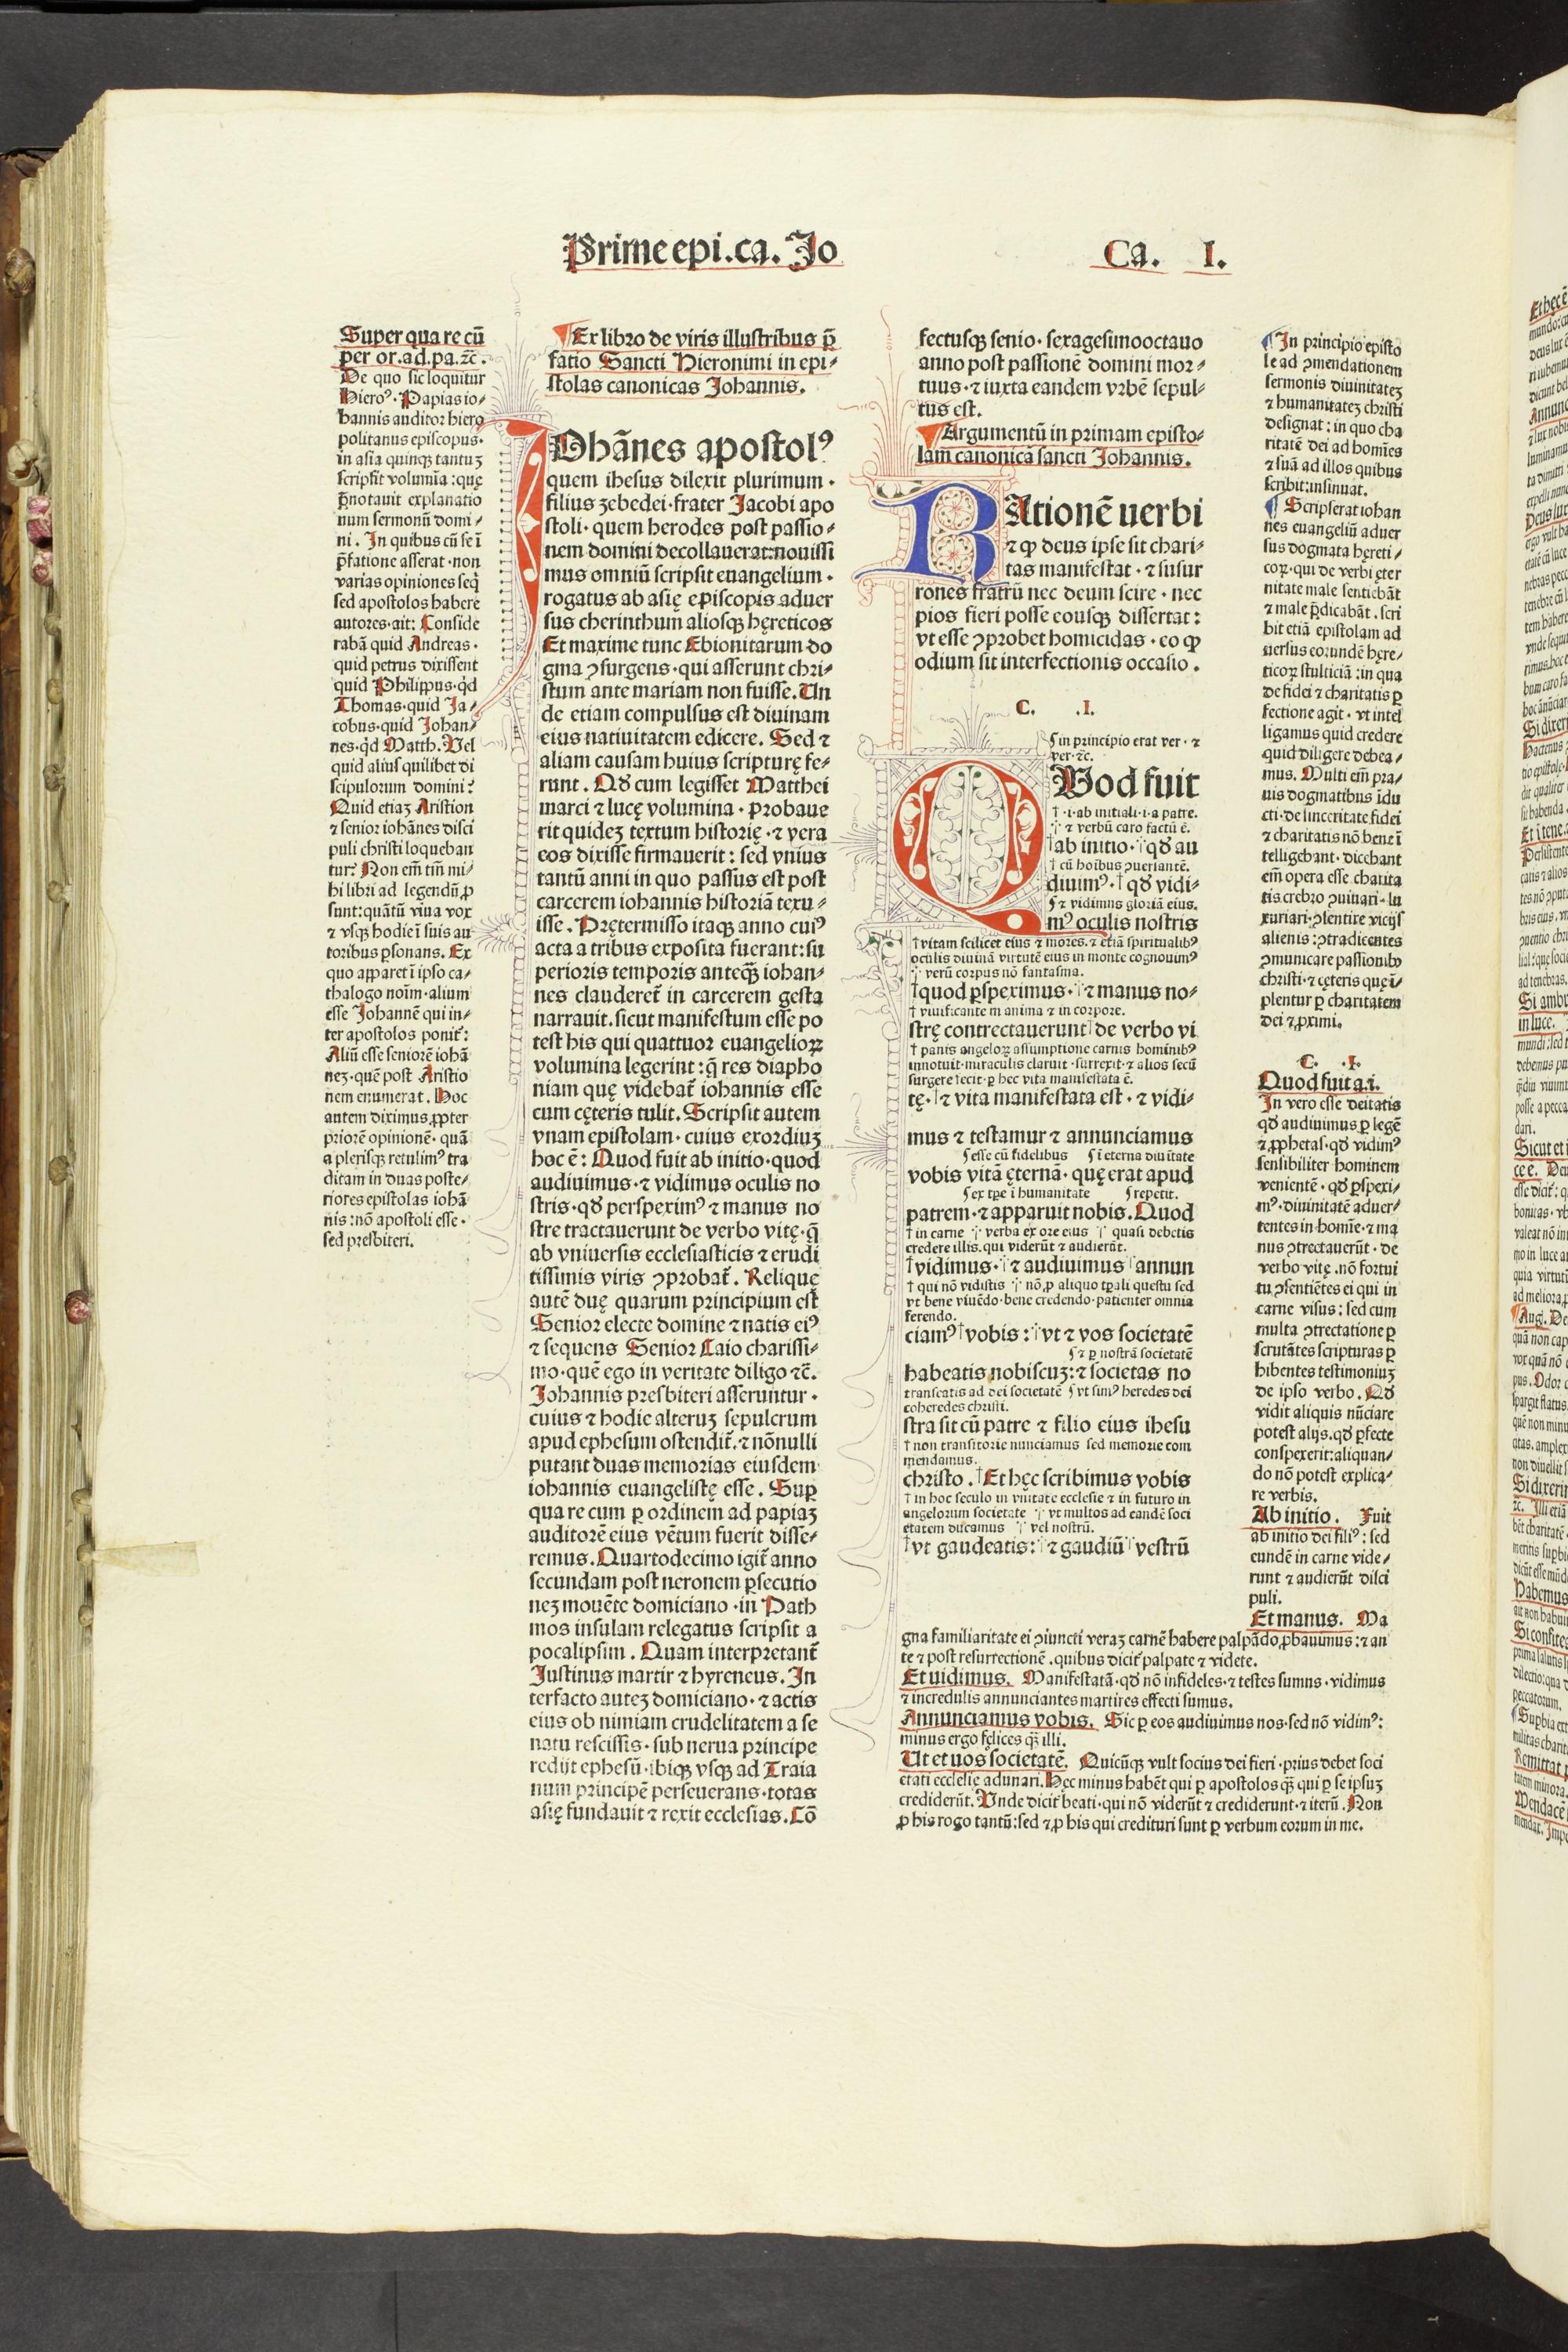 Prime epi.ca. Jo
Ca. I.
Super qua re cū
per or.ad.pa.⁊c̄.
De quo sic loquitur
Hieroꝰ. Papias io⸗
hannis auditor hiero
politanus episcopus·
in asia quinqꝫ tantuʒ
scripsit volumīa : quę
p̄notauit explanatio
num sermonū domi⸗
ni . In quibus cū se ī
p̄fatione asserat · non
varias opiniones seq̄
sed apostolos habere
autores·ait: Conside
rabā quid Andreas ·
quid petrus dixissent
quid Philippus·qd̄
Thomas·quid Ja⸗
cobus·quid Johan⸗
nes·qd̄ Matth. Vel
quid alius quilibet di
scipulorum domini?
Quid etiaʒ Aristion
⁊ senior iohānes disci
puli christi loqueban
tur? Non em̄ tm̄ mi⸗
hi libri ad legendū ꝓ
sunt:quātū viua vox
⁊ vsqꝫ hodie ī suis au
toribus ꝑsonans. Ex
quo apparet ī ipso ca⸗
thalogo noīm·alium
esse Johannē qui in⸗
ter apostolos ponit̄:
Aliū esse seniorē iohā
neʒ·quē post Aristio
nem enumerat. Hoc
autem diximus ꝓpter
priorē opinionē· quā
a plerisqꝫ retulimꝰ tra
ditam in duas poste⸗
riores epistolas iohā
nis : nō apostoli esse ·
sed presbiteri.
Ex libro de viris illustribus p̄
fatio Sancti Hieronimi in epi⸗
stolas canonicas Johannis.
IOhānes apostolꝰ
quem ihesus dilexit plurimum ·
filius zebedei·frater Jacobi apo
stoli· quem herodes post passio⸗
nem domini decollauerat:nouissi
mus omniū scripsit euangelium ·
rogatus ab asię episcopis aduer
sus cherinthum aliosqꝫ hęreticos
Et maxime tunc Ebionitarum do
gma ꝯsurgens·qui asserunt chri⸗
stum ante mariam non fuisse. Un
de etiam compulsus est diuinam
eius natiuitatem edicere. Sed ⁊
aliam causam huius scripturę fe⸗
runt . Qd̄ cum legisset Matthei
marci ⁊ lucę volumina · probaue
rit quideʒ textum historię·⁊ vera
eos dixisse firmauerit : sed vnius
tantū anni in quo passus est post
carcerem iohannis historiā texu⸗
isse . Prętermisso itaqꝫ anno cuiꝰ
acta a tribus exposita fuerant:su
perioris temporis anteqꝫ̄ iohan⸗
nes clauderet̄ in carcerem gesta
narrauit.sicut manifestum esse po
test his qui quattuor euangelioꝝ
volumina legerint : q̄ res diapho
niam quę videbat̄ iohannis esse
cum cęteris tulit. Scripsit autem
vnam epistolam· cuius exordiuʒ
hoc ē : Quod fuit ab initio·quod
audiuimus·⁊ vidimus oculis no
stris·qd̄ perspeximꝰ ⁊ manus no
stre tractauerunt de verbo vitę·q̄
ab vniuersis ecclesiasticis ⁊ erudi
tissimis viris ꝯprobat̄. Reliquę
autē duę quarum principium est
Senior electe domine ⁊ natis eiꝰ
⁊ sequens Senior Caio charissi⸗
mo·quē ego in veritate diligo ⁊c̄.
Johannis presbiteri asseruntur ·
cuius ⁊ hodie alteruʒ sepulcrum
apud ephesum ostendit̄.⁊ nōnulli
putant duas memorias eiusdem
iohannis euangelistę esse. Suꝑ
qua re cum ꝑ ordinem ad papiaʒ
auditorē eius vētum fuerit disse⸗
remus. Quartodecimo igit̄ anno
secundam post neronem ꝑsecutio
neʒ mouēte domiciano · in Path
mos insulam relegatus scripsit a
pocalipsim . Quam interpretant̄
Justinus martir ⁊ hyreneus. In
terfacto auteʒ domiciano·⁊ actis
eius ob nimiam crudelitatem a se
natu rescissis · sub nerua principe
redijt ephesū·ibiqꝫ vsqꝫ ad Traia
num principē perseuerans·totas
asię fundauit ⁊ rexit ecclesias. Cō
fectusqꝫ senio· sexagesimooctauo
anno post passionē domini mor⸗
tuus·⁊ iuxta eandem vrbē sepul⸗
tus est.
Argumentū in primam episto⸗
lam canonicā sancti Johannis.
RAtionē uerbi
⁊ ꝙ deus ipse sit chari⸗
tas manifestat · ⁊ susur
rones fratrū nec deum scire · nec
pios fieri posse eousqꝫ dissertat :
vt esse ꝯprobet homicidas · eo ꝙ
odium sit interfectionis occasio .
C. .I.
in principio erat ver · ⁊
ver·⁊c̄.
QVod fuit
·i·ab initiali·i·a patre.
⁊ verbū caro factū ē.
ab initio · qd̄ au
cū hoībus ꝯuersantē.
diuimꝰ· qd̄ vidi⸗
⁊ vidimus gloriā eius.
mꝰ oculis nostris
vitam scilicet eius ⁊ mores.⁊ etiā spiritualibꝰ
oculis diuinā virtutē eius in monte cognouimꝰ
verū corpus nō fantasma.
quod ꝑspeximus· ⁊ manus no⸗
viuificante m anima ⁊ in corpore.
strę contrectauerunt de verbo vi
panis angeloꝝ assumptione carnis hominibꝰ
innotuit·miraculis claruit·surrexit·⁊ alios secū
surgere fecit·ꝑ hec vita manifestata ē.
tę· ⁊ vita manifestata est · ⁊ vidi⸗
mus ⁊ testamur ⁊ annunciamus
esse cū fidelibus ī eterna diuītate
vobis vitā ęternā · quę erat apud
ex tp̄e ī humanitate repetit.
patrem·⁊ apparuit nobis. Quod
in carne verba ex ore eius quasi debetis
credere illis.qui viderūt ⁊ audierūt.
vidimus· ⁊ audiuimus annun
qui nō vidistis nō ꝓ aliquo tꝑali questu sed
vt bene viuēdo·bene credendo·patienter omnia
ferendo.
ciamꝰ vobis : vt ⁊ vos societatē
⁊ ꝑ nostrā societatē
habeatis nobiscuʒ:⁊ societas no
transeatis ad dei societatē vt simꝰ heredes dei
coheredes christi.
stra sit cū patre ⁊ filio eius ihesu
non transitorie nunciamus sed memorie com
mendamus.
christo . Et hęc scribimus vobis
in hoc seculo in vnitate ecclesie ⁊ in futuro in
angelorum societate vt multos ad eandē soci
etatem ducamus vel nostrū.
vt gaudeatis: ⁊ gaudiū vestrū
In principio episto
le ad ꝯmendationem
sermonis diuinitateʒ
⁊ humanitateʒ christi
designat : in quo cha
ritatē dei ad homīes
⁊ suā ad illos quibus
scribit:insinuat.
Scripserat iohan
nes euangeliū aduer
sus dogmata hęreti⸗
coꝝ · qui de verbi ęter
nitate male sentiebāt
⁊ male p̄dicabāt . scri
bit etiā epistolam ad
uersus eorundē hęre⸗
ticoꝝ stulticiā : in qua
de fidei ⁊ charitatis ꝑ
fectione agit · vt intel
ligamus quid credere
quid diligere debea⸗
mus. Multi em̄ pra⸗
uis dogmatibus īdu
cti·de sinceritate fidei
⁊ charitatis nō bene ī
telligebant· dicebant
em̄ opera esse charita
tis crebro ꝯuiuari·lu
xuriari·ꝯsentire vicijs
alienis : ꝯtradicentes
ꝯmunicare passionibꝰ
christi·⁊ cęteris quę ī⸗
plentur ꝑ charitatem
dei ⁊ ꝓximi.
C. .I.
Quod fuit a.i.
In vero esse deitatis
qd̄ audiuimus ꝑ legē
⁊ ꝓphetas·qd̄ vidimꝰ
sensibiliter hominem
venientē · qd̄ ꝑspexi⸗
mꝰ. diuinitatē aduer⸗
tentes in homīe·⁊ ma
nus ꝯtrectauerūt · de
verbo vitę .nō fortui
tu ꝯsentiētes ei qui in
carne visus : sed cum
multa ꝯtrectatione ꝑ
scrutātes scripturas ꝑ
hibentes testimoniuʒ
de ipso verbo . Qd̄
vidit aliquis nūciare
potest alijs.qd̄ ꝑfecte
conspexerit:aliquan⸗
do nō potest explica⸗
re verbis.
Ab initio. Fuit
ab initio dei filiꝰ : sed
eundē in carne vide⸗
runt ⁊ audierūt disci
puli.
Et manus. Ma
gna familiaritate ei ꝯiuncti veraʒ carnē habere palpādo ꝓbauimus :⁊ an
te ⁊ post resurrectionē . quibus dicit̄ palpate ⁊ videte.
Et uidimus. Manifestatā·qd̄ nō infideles·⁊ testes sumus·vidimus
⁊ incredulis annunciantes martires effecti sumus.
Annunciamus vobis. Sic ꝑ eos audiuimus nos·sed nō vidimꝰ:
minus ergo fęlices qꝫ̄ illi.
Ut et uos societatē. Quicūqꝫ vult socius dei fieri · prius debet soci
etati ecclesie adunari. Hęc minus habēt qui ꝑ apostolos qꝫ̄ qui ꝑ se ipsuʒ
crediderūt. Vnde dicit̄ beati·qui nō viderūt ⁊ crediderunt·⁊ iterū . Non
ꝓ his rogo tantū:sed ⁊ ꝓ his qui credituri sunt ꝑ verbum eorum in me.